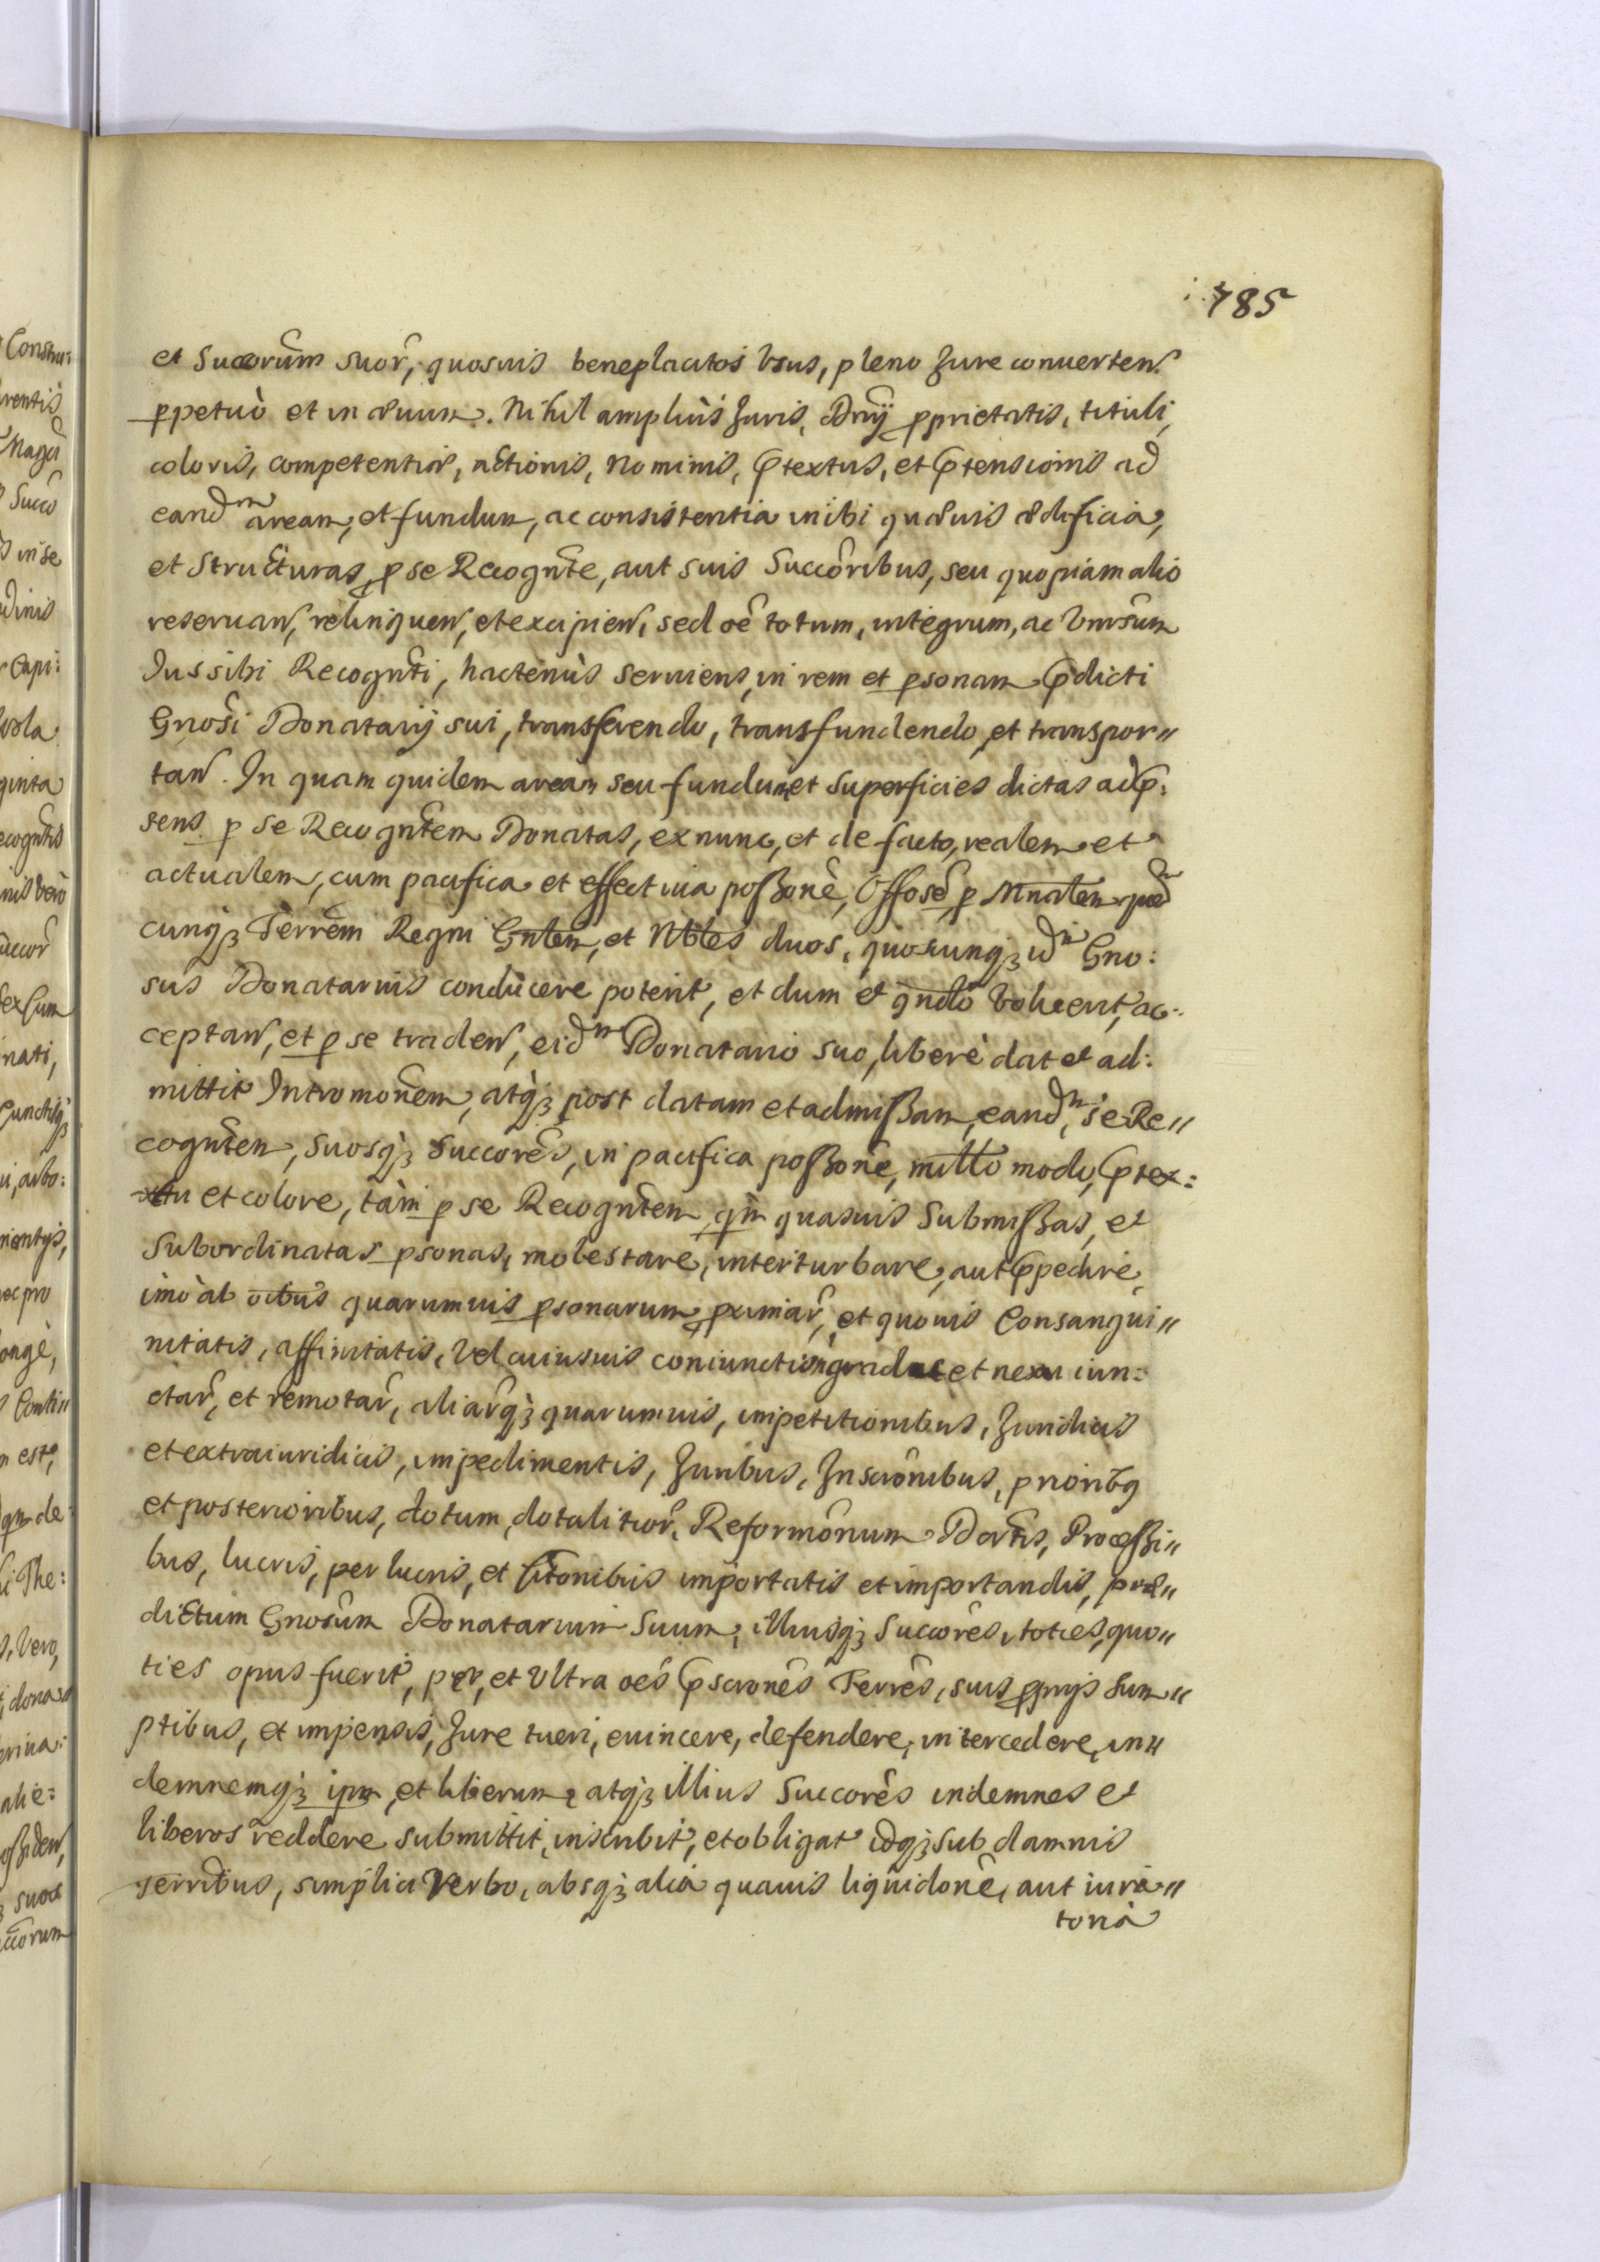 785
et Succorum suor, quosuis beneplacitos Vsus, pleno Jure conuerten.
ppetuò et in æuum. Nihil ampliùs Juris, Dnÿ pprietatis, tituli,
coloris, competentiæ, actionis, Nominis, Ptextus, et Ptensionis ad
eandm aream, et fundum, ac consistentia inibi quæuis ædificia,
et Structuras, p se Recognte, aut suis Succoribus, seu quopiam alio
reseruan, relinquen, et excipien, sed oe totum, integrum, ac Vnrsum
Jus sibi Recognti, hactenùs seruiens, in rem et psonam Pdicti
Gnosi Donatarÿ sui, transferendo, transfundendo, et transpor„
tan. In quam quidem aream seu fundum, et Superficies dictas ad P:
sens p se Recogntem Donatas, ex nunc, et de facto, realem et
actualem, cum pacifica et effectiua possone, Offose, p Mnralem quem
cunq3 Terrem Regni Gnlem, et Nbles duos, quoscunq3 idm Gno:
sus Donatarius condùcere poterit, et dum et qndo Voluerit, ac:
ceptan, et p se traden, eidm Donatario suo, liberè dat et ad:
mittit Intromonem, atq3 post datam et admissam, eandm, se Re„
cogntem, suosq3 Succores, in pacifica possone, nullo modo, Ptex:
tu et colore, tàm p se Recogntem qm quasuis Submissas, et
Subordinatas psonas, molestare, interturbare, aut Ppedire,
imò ab oibus quarumuis psonarum pximar, et quouis Consangui„
nitatis, affinitatis, Vel cuiusuis coniunctionis gradu et nexu iun:
ctar, et remotar, aliarq3 quarumuis, impetitionibus, Juridicis
et extraiuridicis, impedimentis, Juribus, Inscronibus, prioribq
et posterioribus, dotum, dotalitior, Reformonum Dortis, Processi„
bus, lucris, perlucris, et Citonibus importatis et importandis, præ„
dictum Gnosum Donatarium Suum, illiusq3 Succores, toties, quo„
ties opus fuerit, per, et Vltra oes Pscrones Terres, suis pprijs Sum„
ptibus, et impensis, Jure tueri, euincere, defendere, intercedere, in„
demnemq3 ipm, et liberum, atq3 illius Succores indemnes et
liberos reddere submittit, inscribit, et obligat idq3 sub damnis
terribus, simplici Verbo, absq3 alia quauis liquidone, aut iura„
toria